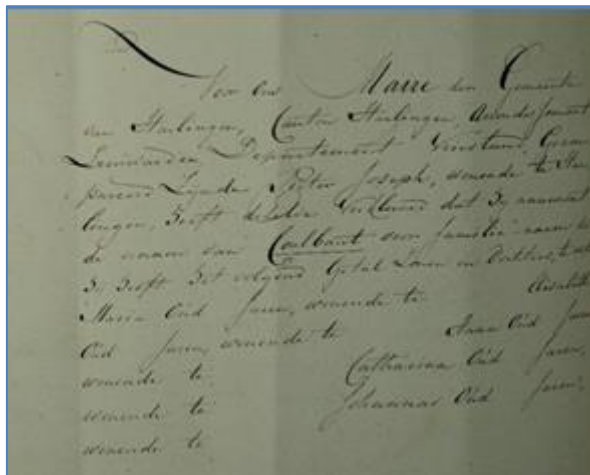 Voor ons Maire der Gemeente
van Harlingen, Canton Harlingen, Arrondissement
Leeuwarden Departement Vriesland, Gecom
pareerd Zijnde Pieter Joseph, wonende te Har
lingen, Heeft dezelve verklaard dat Zij aanneemt
de naam van Coulbaut voor familie-naam
Zij Heeft Het volgend Getal Zonen en Dochters, te
Maria Oud Jaren, wonende te Elisabeth
Oud Jaren, wonende te Anna Oud Jaren
wonende te Catharina Oud Jaren,
wonende te Johannes Oud Jaren,
wonende te